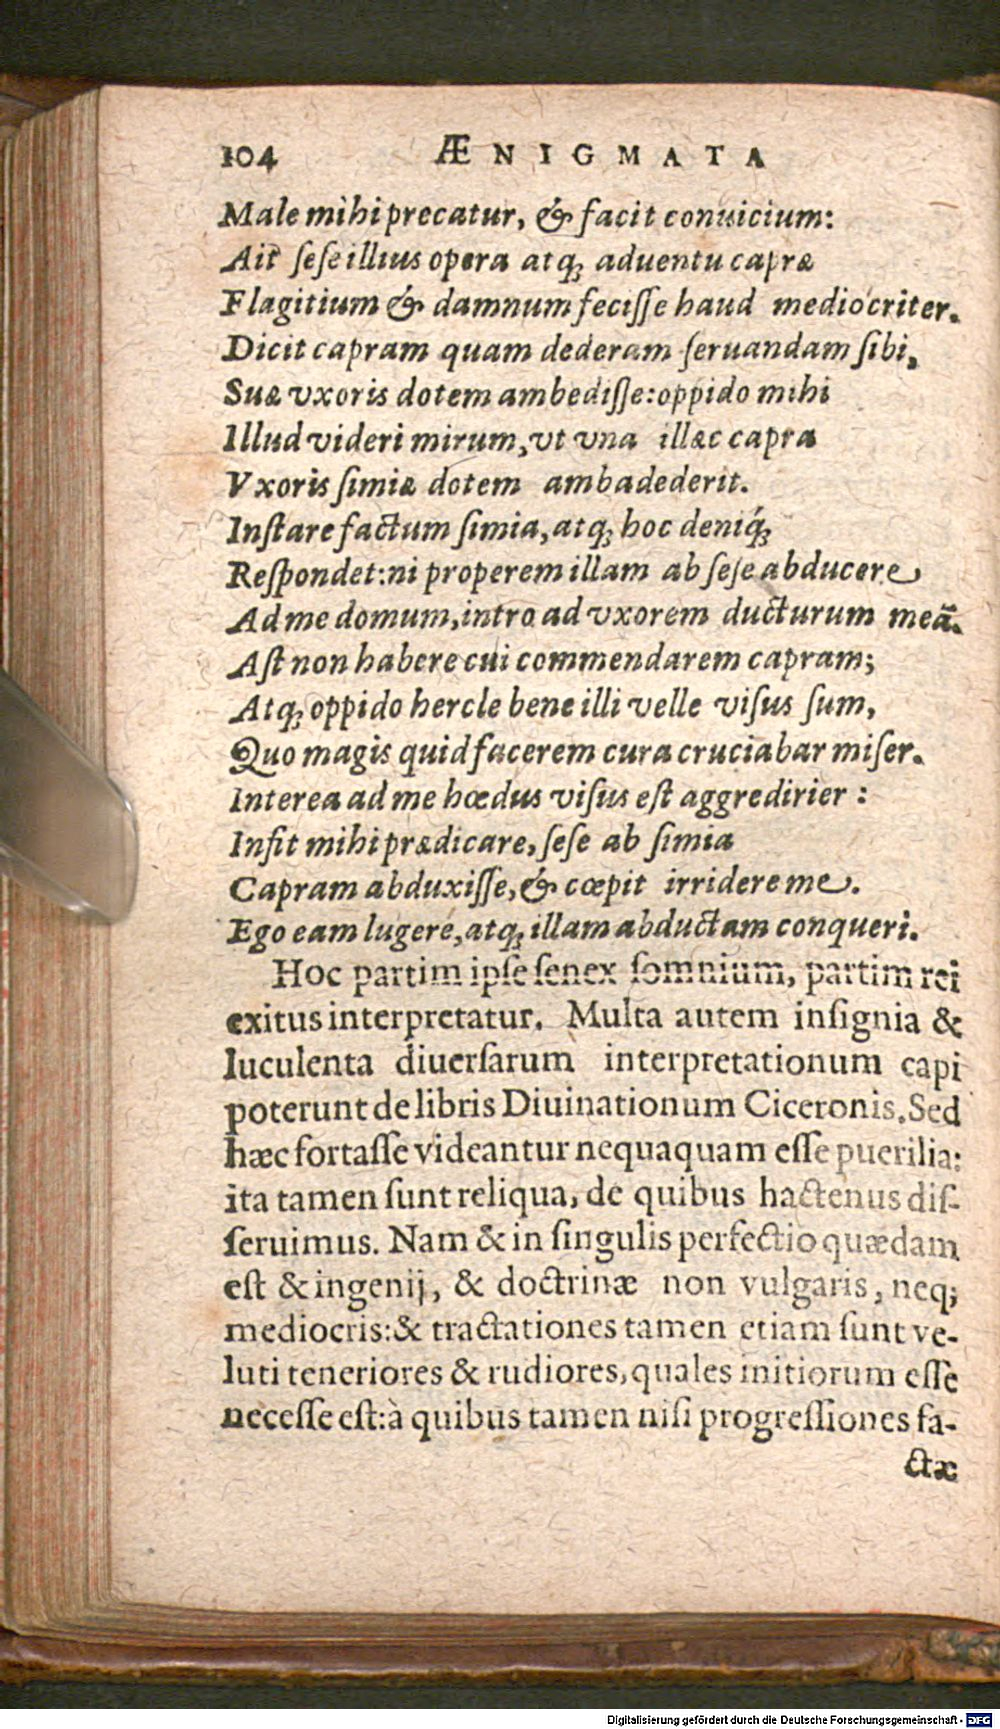 104 ÆNIGMATA
Male mihi precatur, & facit conuicium:
Ait ſeſe illius opera atq; aduentu capræ
Flagitium & damnum feciſſe haud mediocriter.
Dicit capram quam dederam ſeruandam ſibi,
Suæ vxoris dotem ambediſſe: oppido mihi
Illud videri mirum, vt vna illæc capra
Vxoris ſimiæ dotem ambadederit.
Inſtare factum ſimia, atq; hoc deniq́;
Reſpondet: ni properem illam ab ſeſe abducere
Ad me domum, intro ad vxorem ducturum meā.
Aſt non habere cui commendarem capram;
Atq; oppido hercle bene illi velle viſus ſum,
Quo magis quid facerem cura cruciabar miſer.
Interea ad me hœdus viſus eſt aggredirier:
Infit mihi prædicare, ſeſe ab ſimia
Capram abduxiſſe, & cœpit irridere me.
Ego eam lugere, atq; illam abductam conqueri.
Hoc partim ipſe ſenex ſomnium, partim rei
exitus interpretatur. Multa autem inſignia &
luculenta diuerſarum interpretationum capi
poterunt de libris Diuinationum Ciceronis. Sed
hæc fortaſſe videantur nequaquam eſſe puerilia:
ita tamen ſunt reliqua, de quibus hactenus diſ-
ſeruimus. Nam & in ſingulis perfectio quædam
eſt & ingenij, & doctrinæ non vulgaris, neq;
mediocris: & tractationes tamen etiam ſunt ve-
luti teneriores & rudiores, quales initiorum eſſe
neceſſe eſt: à quibus tamen niſi progreſſiones fa-
ctæ
Digitalisierung gefördert durch die Deutsche Forschungsgemeinschaft - DFG